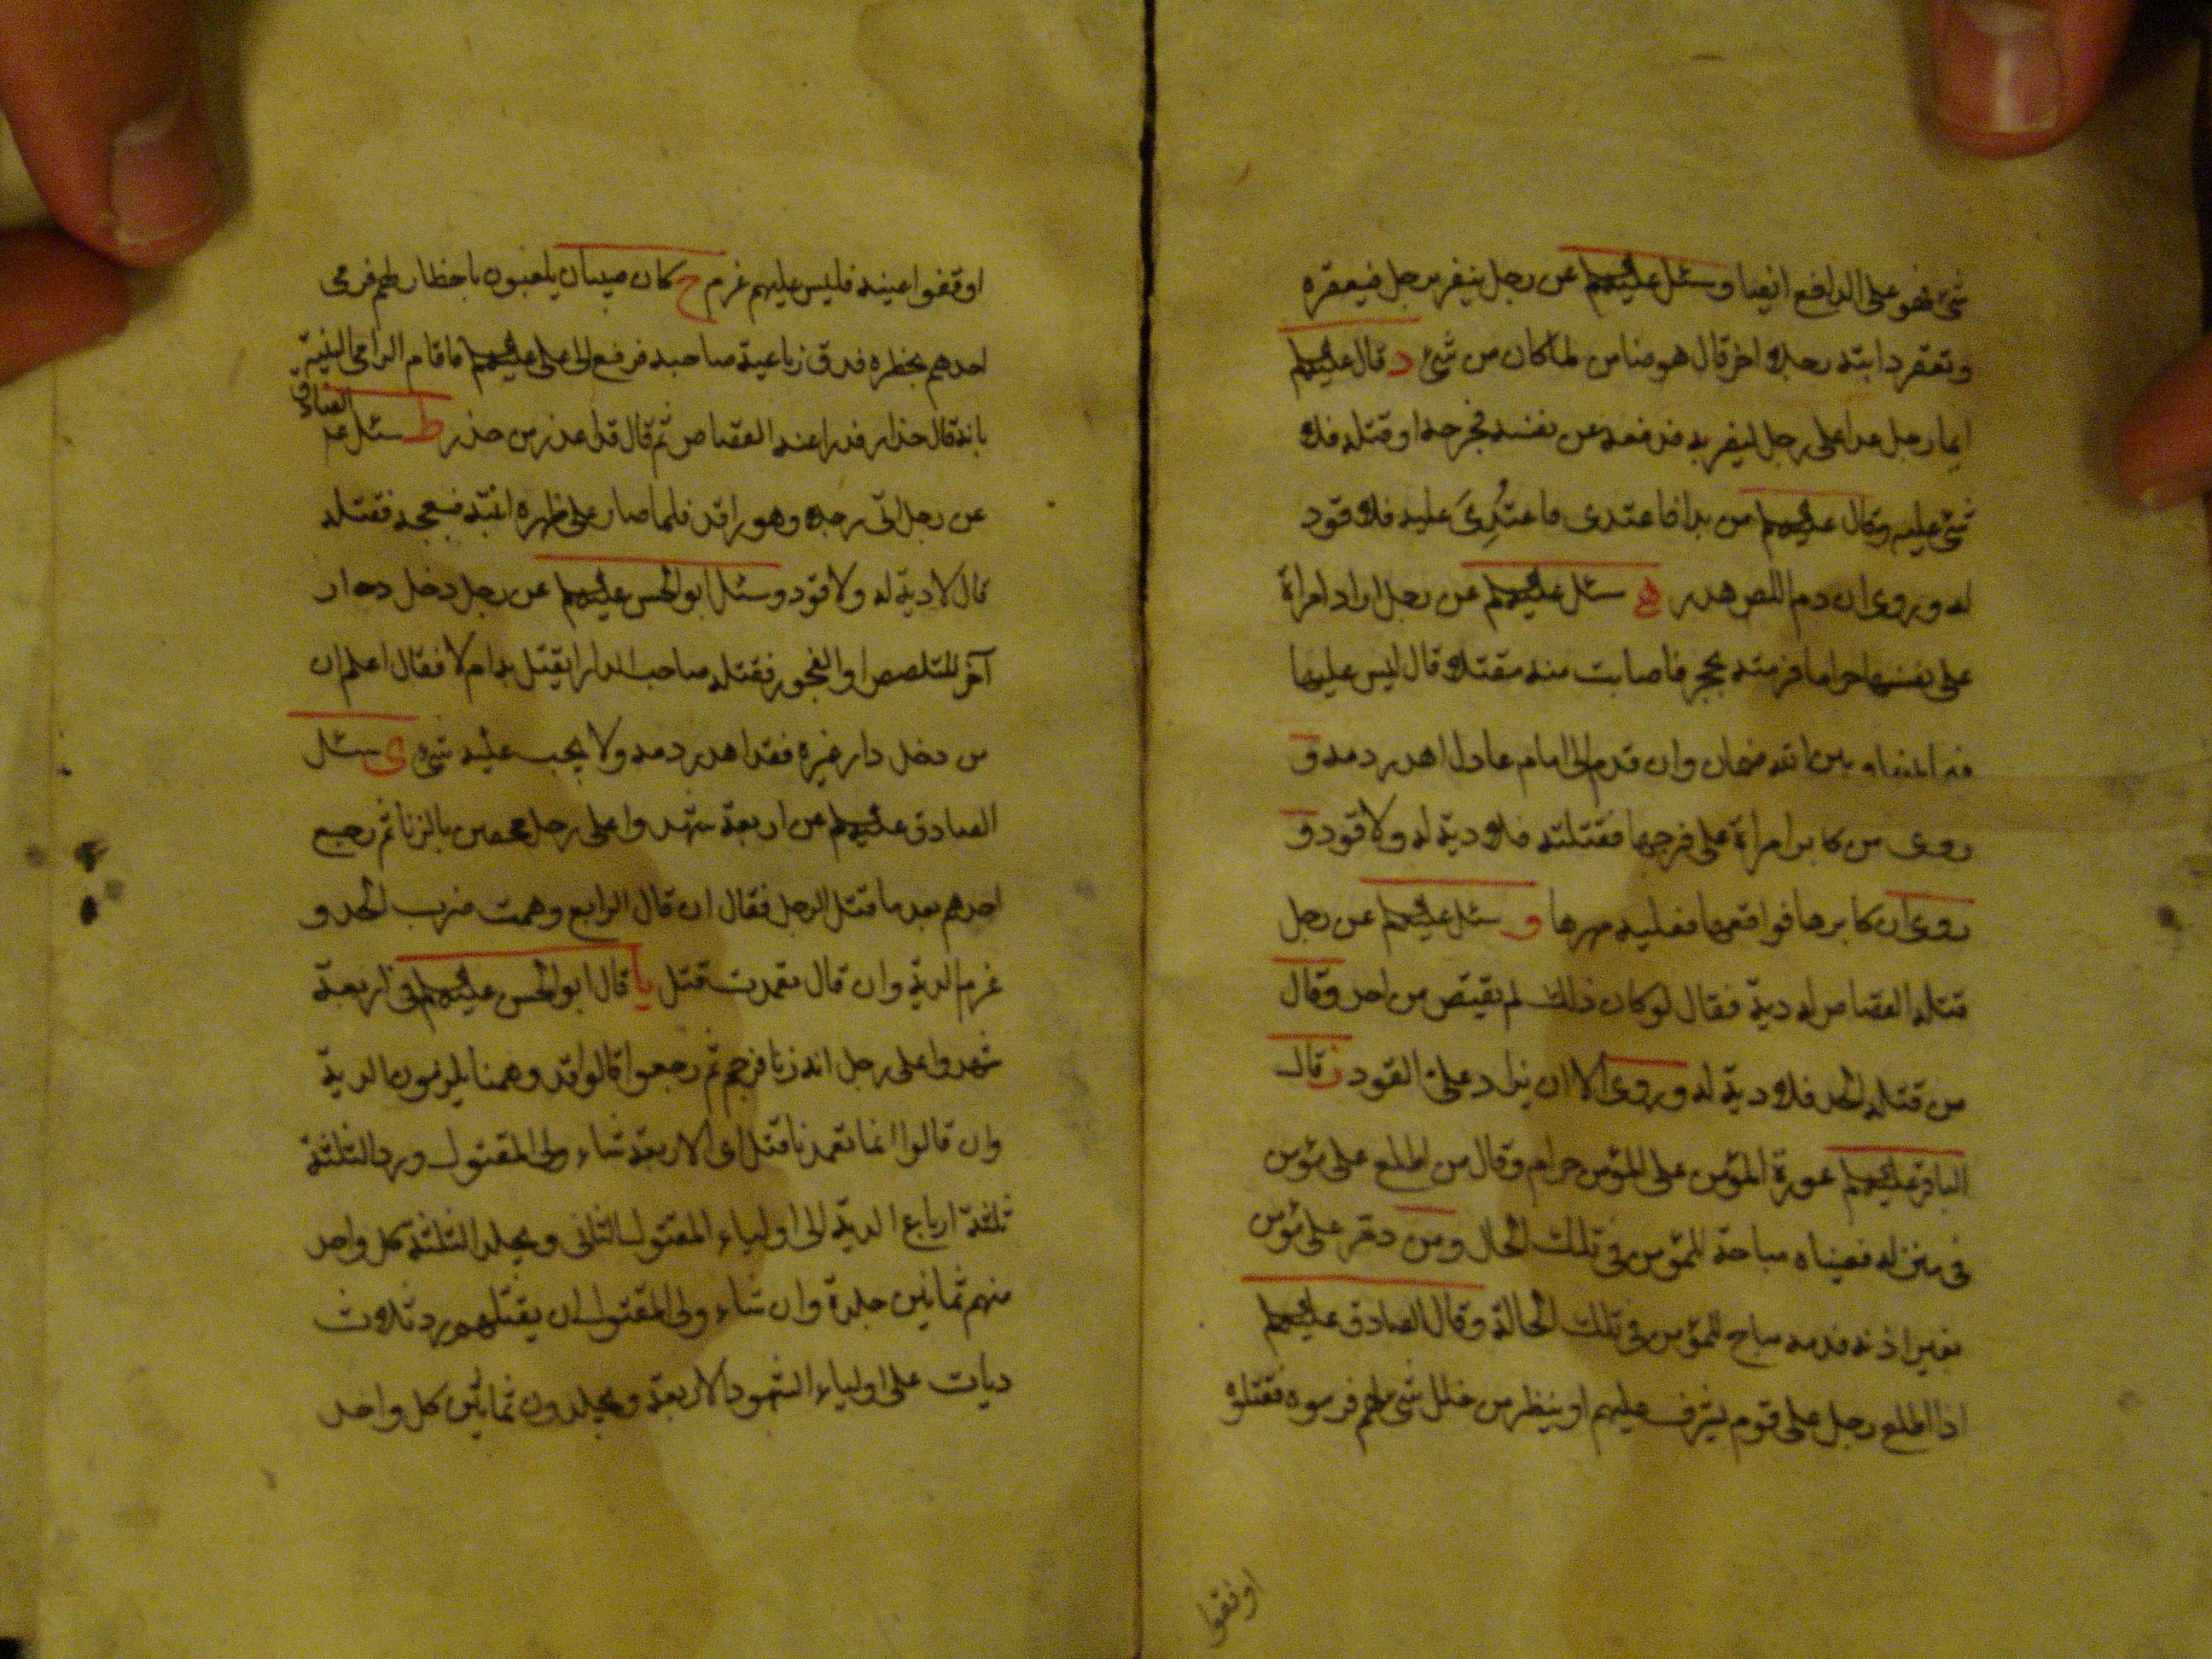 شئ فهو على الدافع ايضا وسئل عليهم عن رجل ينفر برجل فيعقره
وتعقر دابته رجلا اخر قال هو ضامن لما كان من شئ د قال عليهم
ايما رجل عدا على رجل ليضربه فدفعه عن نفسه فجرحه او قتله فلا
شئ عليه وقال عليهم من بدا فاعتدى فاعتُدِىَ عليه فلا قود
له وروى ان دم اللص هدر ه سئل عليهم عن رجل اراد امراة
على نفسها حراما فرمته بحجر فاصابت منه مقتلا قال ليس عليها
فيما بينها وبين الله وان قدم الى امام عادل اهدر دمه و
روى من كابر امراة على فرجها فقتلته فلا دية له ولا قود و
روى ان كابرها فواقعها فعليه مهرها و سئل عليهم عن رجل
قتله القصاص له دية فقال لو كان ذلك لم يقتص من احد وقال
من قتله الحد فلا دية له وروى الا ان يزاد على القود ز قال
الباقر عليهم عورة المؤمن على المؤمن حرام وقال من اطلع على مؤمن
فى منزله فعيناه مباحة للمؤمن فى تلك الحال ومن دمر على مؤمن
بغير اذنه فدمه مباح للمؤمن فى تلك الحالة وقال الصادق عليهم
اذا اطلع رجل على قوم يشرف عليهم او ينظر من خلل شئ لهم فرموه فقتلوه
اوفقؤا
اوفقؤا عينه فليس عليهم غرم ح كان صبيان يلعبون باخطار لهم فرمى
احدهم بخطره فدق رباعية صاحبه فرفع الى على عليهم فاقام الرامى البينة
بانه قال حذار فدرا عنه القصاص ثم قال قد اعذر من حذر ط سئل الصادق
عن رجل اتى رجلا وهو راقد فلما صار على ظهره انتبه فبعجه فقتله
قال لا دية له ولا قود وسئل ابو الحسن عليهم عن رجل دخل دار
آخر للتلصص او الفجور فقتله صاحب الدار ايقتل به ام لا فقال اعلم ان
من دخل دار غيره فقد اهدر دمه ولا يجب عليه شئ ى سئل
الصادق عليهم عن اربعة شهدوا على رجل محصن بالزنا ثم رجع
احدهم بعد ما قتل الرجل فقال ان قال الرابع وهمت ضرب الحد و
غرم الدية وان قال تعمدت قتل يا قال ابو الحسن عليهم فى اربعة
شهدوا على رجل انه زنا فرجم ثم رجعوا قالوا قد وهمنا يلزمون الدية
وان قالوا انما تعمدنا قتل اى الاربعة شاء ولى المقتول ورد الثلثة
ثلثة ارباع الدية الى اولياء المقتول الثانى ويجلد الثلثة كل واحد
منهم ثمانين جلدة وان شاء ولى المقتول ان يقتلهم رد ثلاث
ديات على اولياء الشهود الاربعة ويجلدون ثمانين كل واحد